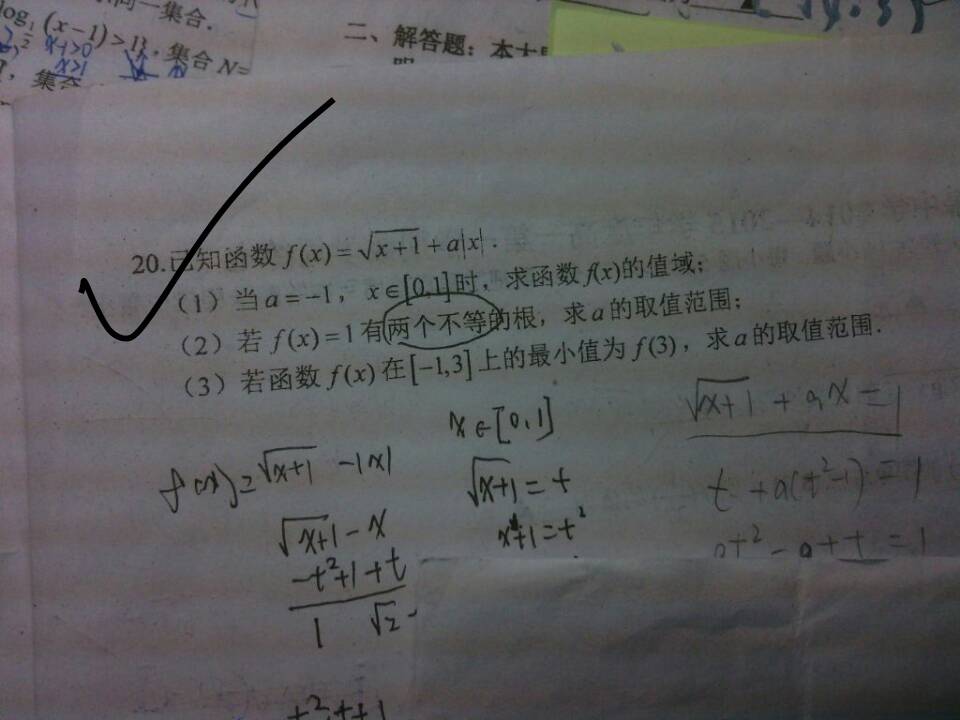 同一集合.
log½(x−1)>1}, 集合 N=
x-1>0
x>1
集合
二、解答题：本大
20.已知函数 f(x)=√(x+1)+a|x|.
（1）当 a=−1，x∈[0,1]时，求函数 f(x)的值域；
（2）若 f(x)=1有两个不等的根，求 a 的取值范围；
（3）若函数 f(x)在[−1,3]上的最小值为 f(3)，求 a 的取值范围.
x∈[0,1]
√(x+1) + ax = 1
f(x)=√(x+1) -|x|
√(x+1) = t
t + a(t²-1) = 1
√(x+1) - x
x+1=t²
at² - a + t = 1
-t²+1+t
1 √2-